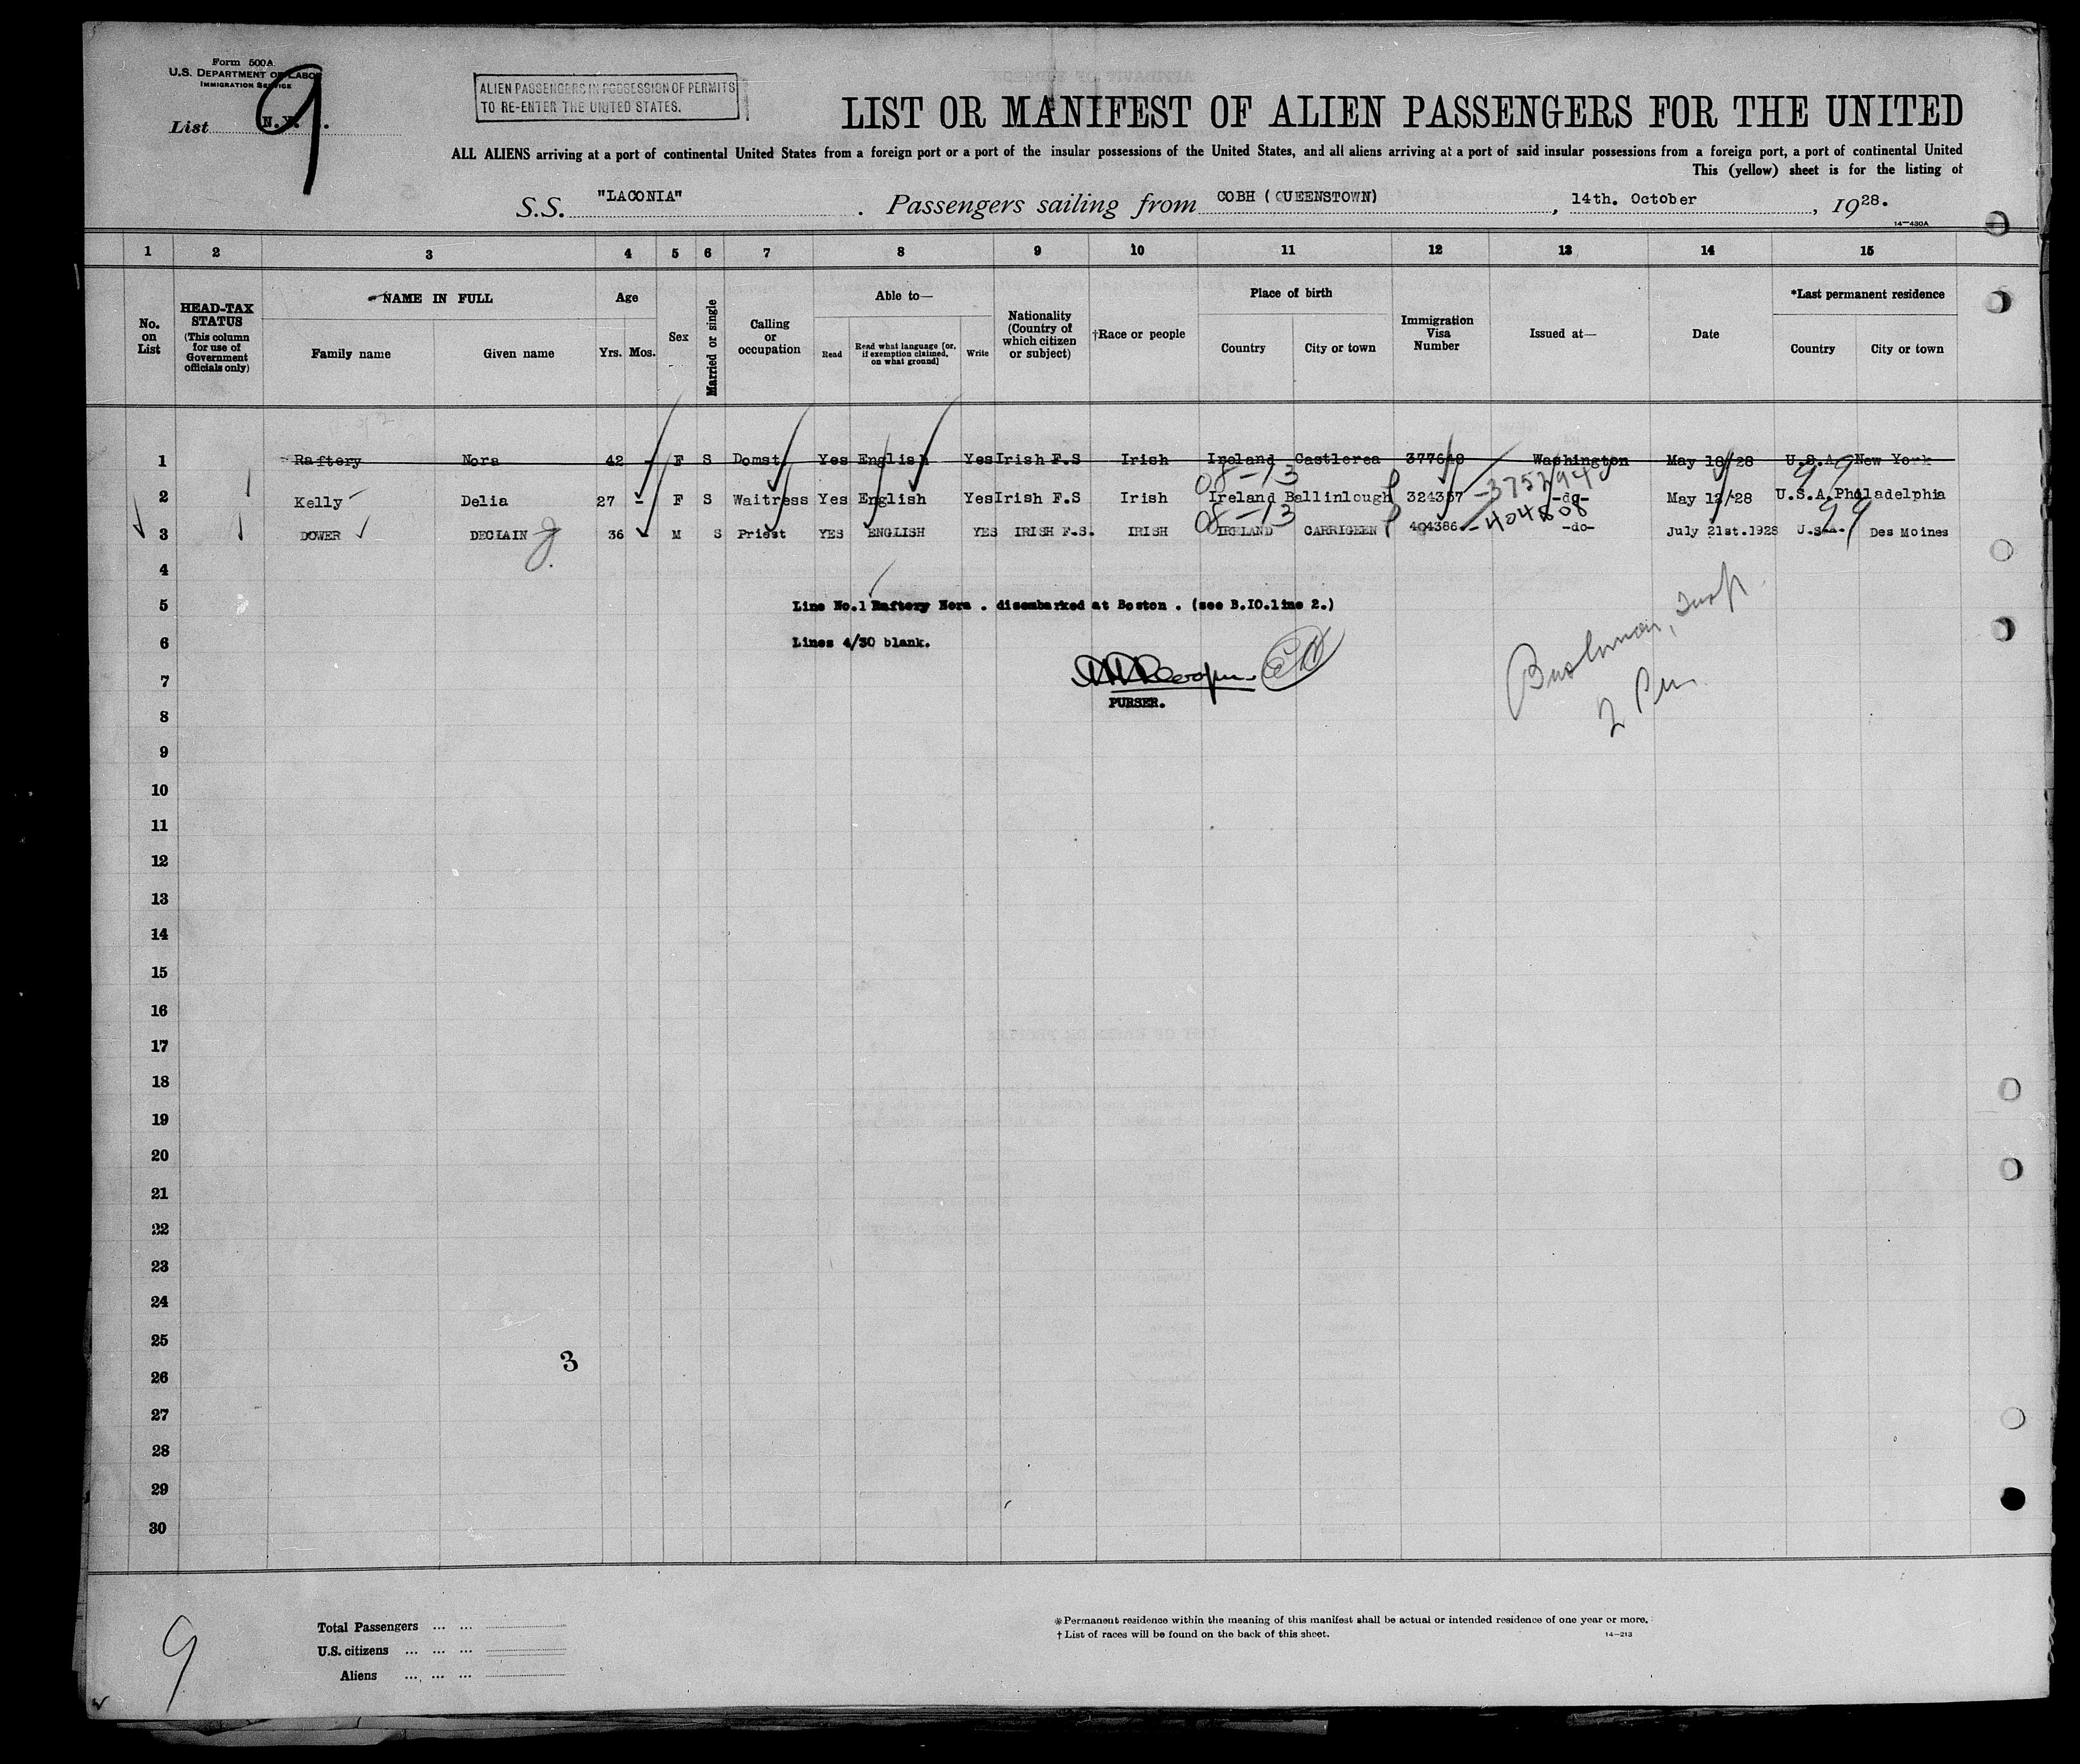 Form 500A
U.S. DEPARTMENT OF LABOR
IMMIGRATION SERVICE
List N.Y. 9
ALIEN PASSENGERS IN POSSESSION OF PERMITS
TO RE-ENTER THE UNITED STATES.
LIST OR MANIFEST OF ALIEN PASSENGERS FOR THE UNITED
ALL ALIENS arriving at a port of continental United States from a foreign port or a port of the insular possessions of the United States, and all aliens arriving at a port of said insular possessions from a foreign port, a port of continental United
This (yellow) sheet is for the listing of
S.S. "LACONIA" . Passengers sailing from COBH (QUEENSTOWN) , 14th. October , 1928.
14—430A
1 2 3 4 5 6 7 8 9 10 11 12 13 14 15
No. on List
HEAD-TAX STATUS (This column for use of Government officials only)
NAME IN FULL
Family name
Given name
Age
Yrs. Mos.
Sex
Married or single
Calling or occupation
Able to—
Read
Read what language [or, if exemption claimed, on what ground]
Write
Nationality (Country of which citizen or subject)
†Race or people
Place of birth
Country
City or town
Immigration Visa Number
Issued at—
Date
*Last permanent residence
Country
City or town
1 Raftery Nora 42 - F S Domst Yes English Yes Irish F.S Irish Ireland Castlerea 377640 Washington May 18/28 U.S.A. New York
08-13 -3752940 99
2 Kelly Delia 27 - F S Waitress Yes English Yes Irish F.S Irish Ireland Ballinlough 324357 -do- May 12/28 U.S.A. Philadelphia
08-13 -404808 99
3 DOWER DECIAIN J. 36 M S Priest YES ENGLISH YES IRISH F.S. IRISH IRELAND CARRIGEEN 404386 -do- July 21st.1928 U.S.A. Des Moines
4
5 Line No.1 Raftery Nora . disembarked at Boston . (see B.10.line 2.)
6 Lines 4/30 blank.
7
PURSER.
8
9
10
11
12
13
14
15
16
17
18
19
20
21
22
23
24
25
3
26
27
28
29
30
9
Total Passengers ... ...
U.S. citizens ... ... ...
Aliens ... ... ...
*Permanent residence within the meaning of this manifest shall be actual or intended residence of one year or more.
†List of races will be found on the back of this sheet.
14—213